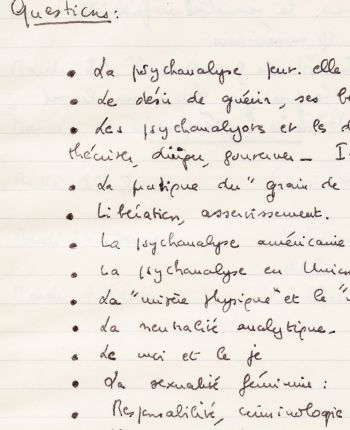 Questions:
• La psychanalyse peut-elle
• Le désir de guérir, ses
• Les psychanalystes et les
théoriser, diriger, gouverner -
• La pratique du "grain de
• Libération, asservissement.
• La psychanalyse américaine
• La psychanalyse en Union
• La "misère physique" et le "
• La neutralité analytique.
• Le moi et le je
• La sexualité féminine :
• Responsabilité, criminologie